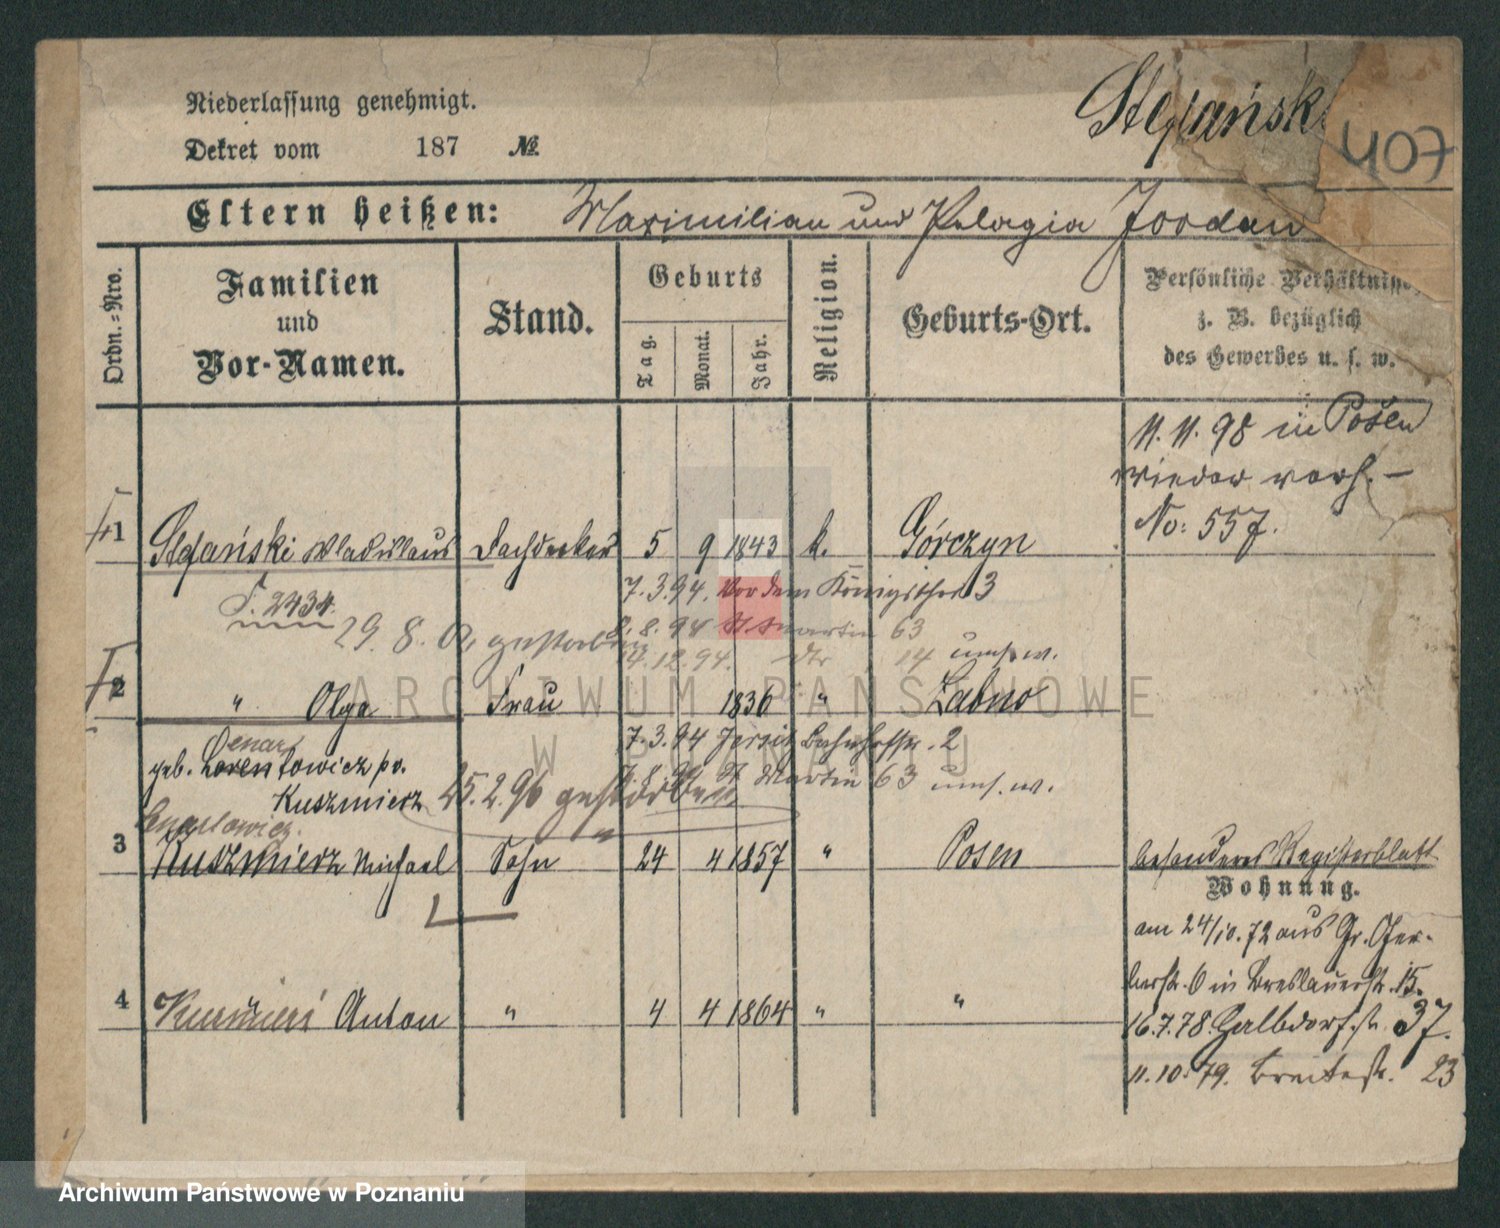 Niederlassung genehmigt.
Dekret vom 187 №
Stefański
407
Eltern heißen: Maximilian und Pelagia Jordan
Ordn.-Nro.
Familien
und
Vor-Namen.
Stand.
Geburts
Tag.
Monat.
Jahr.
Religion.
Geburts-Ort.
Persönliche Verhältnisse
z. B. bezüglich
des Gewerbes u. s. w.
11. 11. 98 in Posen
wieder vorh. —
No: 557.
1 Stefański Wladislaus Dachdecker 5 9 1843 k. Górczyn
7.3.94. Vor dem Königsthor 3
S. 2434.
29. 8. gestorben
8. 94 St Martin 63
4.12.94. dto 14 ums. w.
2 " Olga Frau 1836 " Żabno
7.3.94 Jersitz Bahnhofstr. 2
geb. Lorentowicz pv.
8. 94 St Martin 63 ums. w.
Kuszmierz
25.2.96 gestorben
3 Kuszmierz Michael Sohn 24 4 1857 " Posen
besonderes Registerblatt
Wohnung.
am 24/10.72 aus Gr. Ger-
berstr. 6 in Breslauerstr. 15.
4 Anton " 4 4 1864 " "
16.7.78. Halbdorfstr. 37.
11.10.79. Breitestr. 23
ARCHIWUM PAŃSTWOWE
W POZNANIU
Archiwum Państwowe w Poznaniu